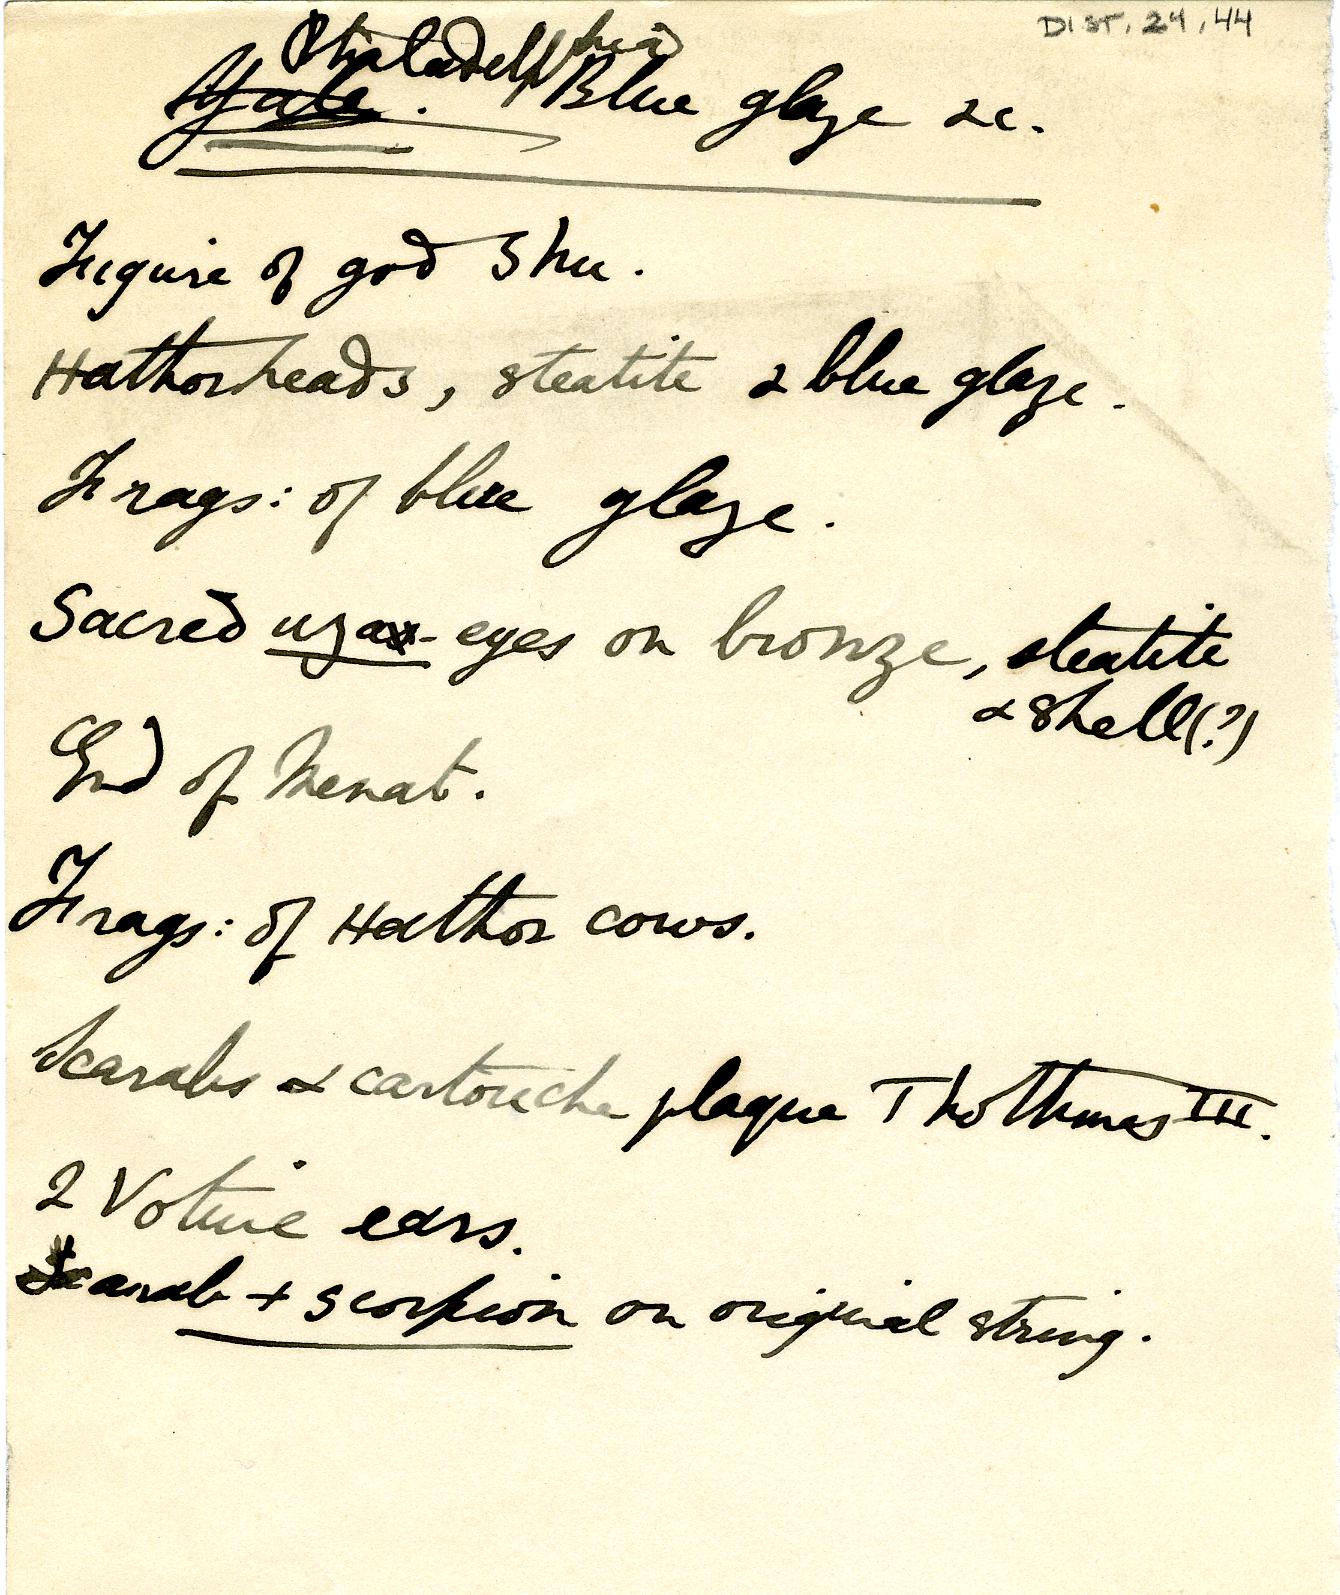 DIST. 24, 44
Philadelphia
Yale. Blue glaze &c.
Figure of god Shu.
Hathor heads, steatite & blue glaze.
Frags: of blue glaze.
Sacred uza- eyes on bronze, steatite
& shell(?)
End of Menat.
Frags: of Hathor cows.
Scarabs & cartouche plaque Thothmes III.
2 Votive ears.
Scarab + scorpion on original string.